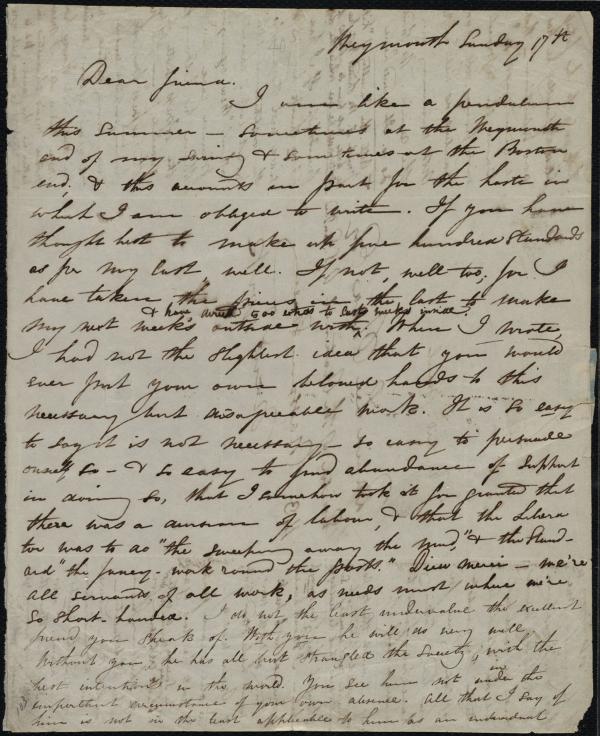 Weymouth Sunday 17th
Dear friend.
I am like a pendulum
this summer – sometimes at the Weymouth
end of my swing & sometimes at the Boston
end, & this accounts in part for the haste in
which I am obliged to write. If you have
thought best to make up five hundred Standards
as per my last, well. If not, well too; for I
have taken the in the last to make
& have to do extras to last week's inside.
my next week's outside with. When I wrote,
I had not the slightest idea that you would
ever put your own beloved hands to this
necessary but disagreeable work. It is so easy
to say it is not necessary – so easy to persuade
oneself so – & so easy to find abundance of support
in doing so, that I somehow took it for granted that
there was a division of labour, & that the Libera
tor was to do "the sweeping away the mud," & the Stand-
ard "the fancy-work round the posts." Dieu merci – we're
all servants of all work, as needs must where we're
so short-handed. I do not the least undervalue the excellent
friend you speak of. With you he will do very well.
Without you, he has all but strangled the Society, with the
best intentions in the world. You see him not under the
important circumstance of your own absence. All that I say of
him is not in the least applicable to him as an individual